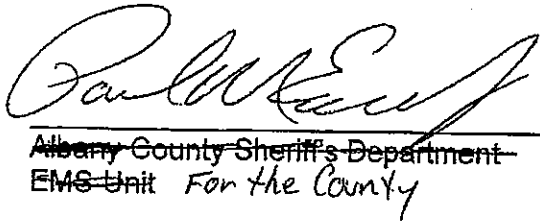 Albany County Sheriff's Department
EMS Unit For the County